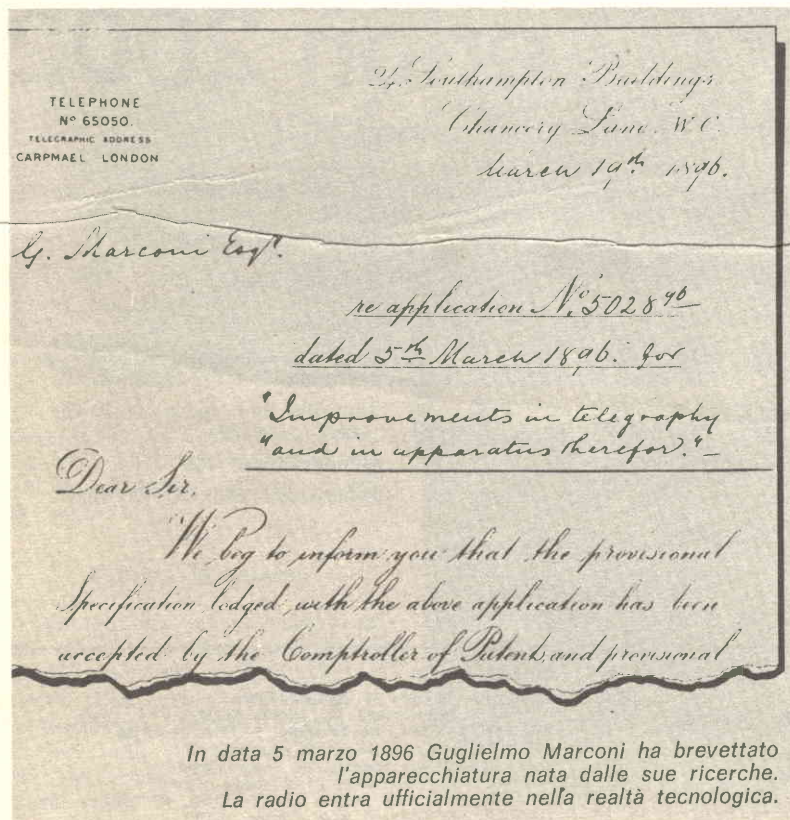 TELEPHONE
Nº 65050.
TELEGRAPHIC ADDRESS
CARPMAEL LONDON
24, Southampton Buildings
Chancery Lane. W.C.
March 19th 1896.
G. Marconi Esqre.
re application No. 5028 96
dated 5th March 1896. for
"Improvements in telegraphy
"and in apparatus therefor." —
Dear Sir,
We beg to inform you that the provisional
Specification lodged with the above application has been
accepted by the Comptroller of Patents and provisional
In data 5 marzo 1896 Guglielmo Marconi ha brevettato
l'apparecchiatura nata dalle sue ricerche.
La radio entra ufficialmente nella realtà tecnologica.